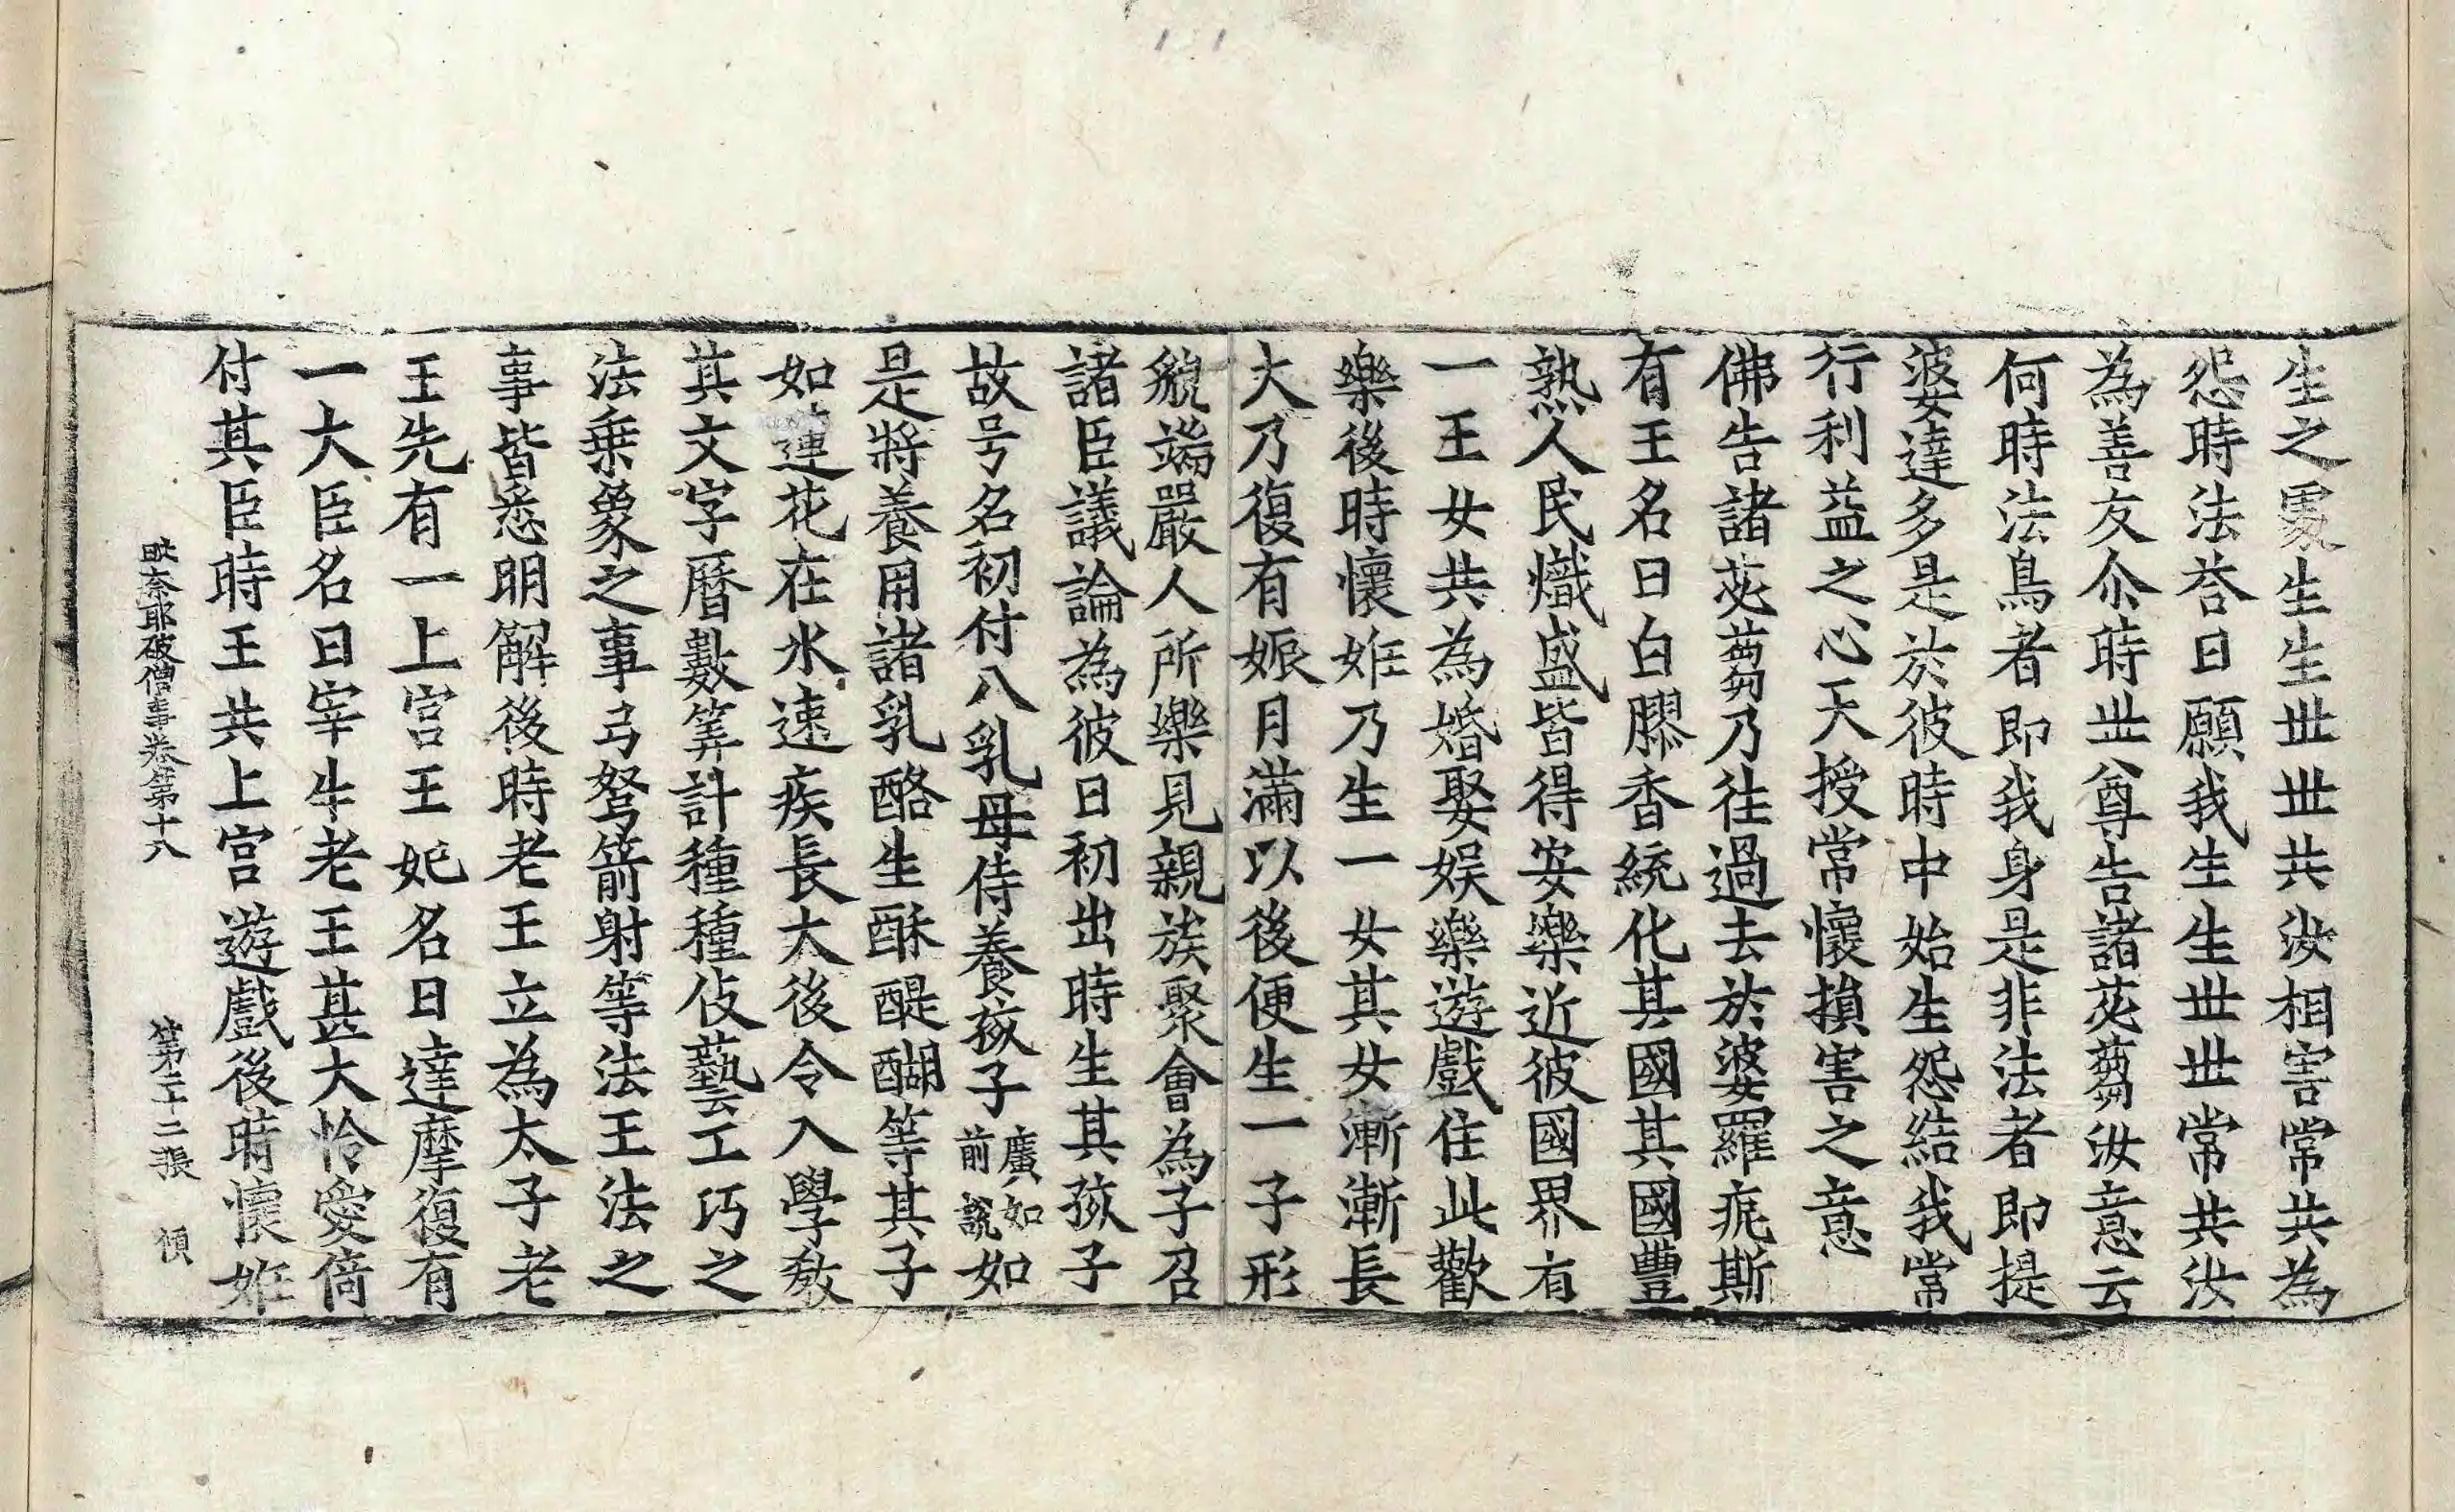 生之處生生丗丗共汝相害常共為
怨時法荅曰願我生生丗丗常共汝
為善友尒時丗尊告諸苾蒭汝意云
何時法鳥者即我身是非法者即提
婆達多是於彼時中始生怨結我常
行利益之心天授常懷損害之意
佛告諸苾蒭乃往過去於婆羅痆斯
有王名曰白膠香統化其國其國豐
熟人民熾盛皆得安樂近彼國界有
一王女共為婚娶娱樂遊戲住此歡
樂後時懷姙乃生一女其女漸漸長
大乃復有娠月滿以後便生一子形
貌端嚴人所樂見親族聚會為子召
諸臣議論為彼日初出時生其孩子
故号名初付八乳母侍養孩子廣如前說如
是將養用諸乳酪生酥醍醐等其子
如蓮花在水速疾長大後令入學教
其文字曆數筭計種種伎藝工巧之
法乗象之事弓弩箭射等法王法之
事皆悉明解後時老王立為太子老
王先有一上宫王妃名曰達摩復有
一大臣名曰宰牛老王甚大怜愛倚
付其臣時王共上宫遊戲後時懷姙
毗奈耶破僧事卷第十八 第二十二張